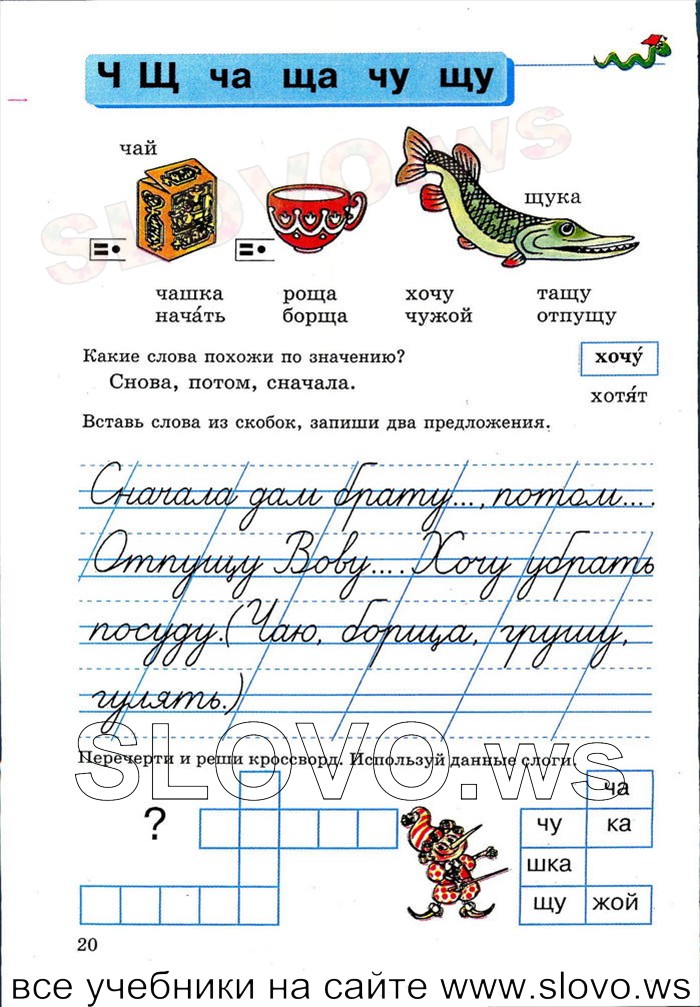 Ч Щ ча ща чу щу
чай
щука
=• =•
чашка роща хочу тащу
нача́ть борща чужой отпущу
Какие слова похожи по значению?
хочу́
Снова, потом, сначала.
хотя́т
Вставь слова из скобок, запиши два предложения.
Сначала дам брату..., потом....
Отпущу Вову.... Хочу убрать
посуду.(Чаю, борща, грушу,
гулять.)
SLOVO.ws
SLOVO.ws
Перечерти и реши кроссворд. Используй данные слоги.
ча
? чу ка
шка
щу жой
20
все учебники на сайте www.slovo.ws